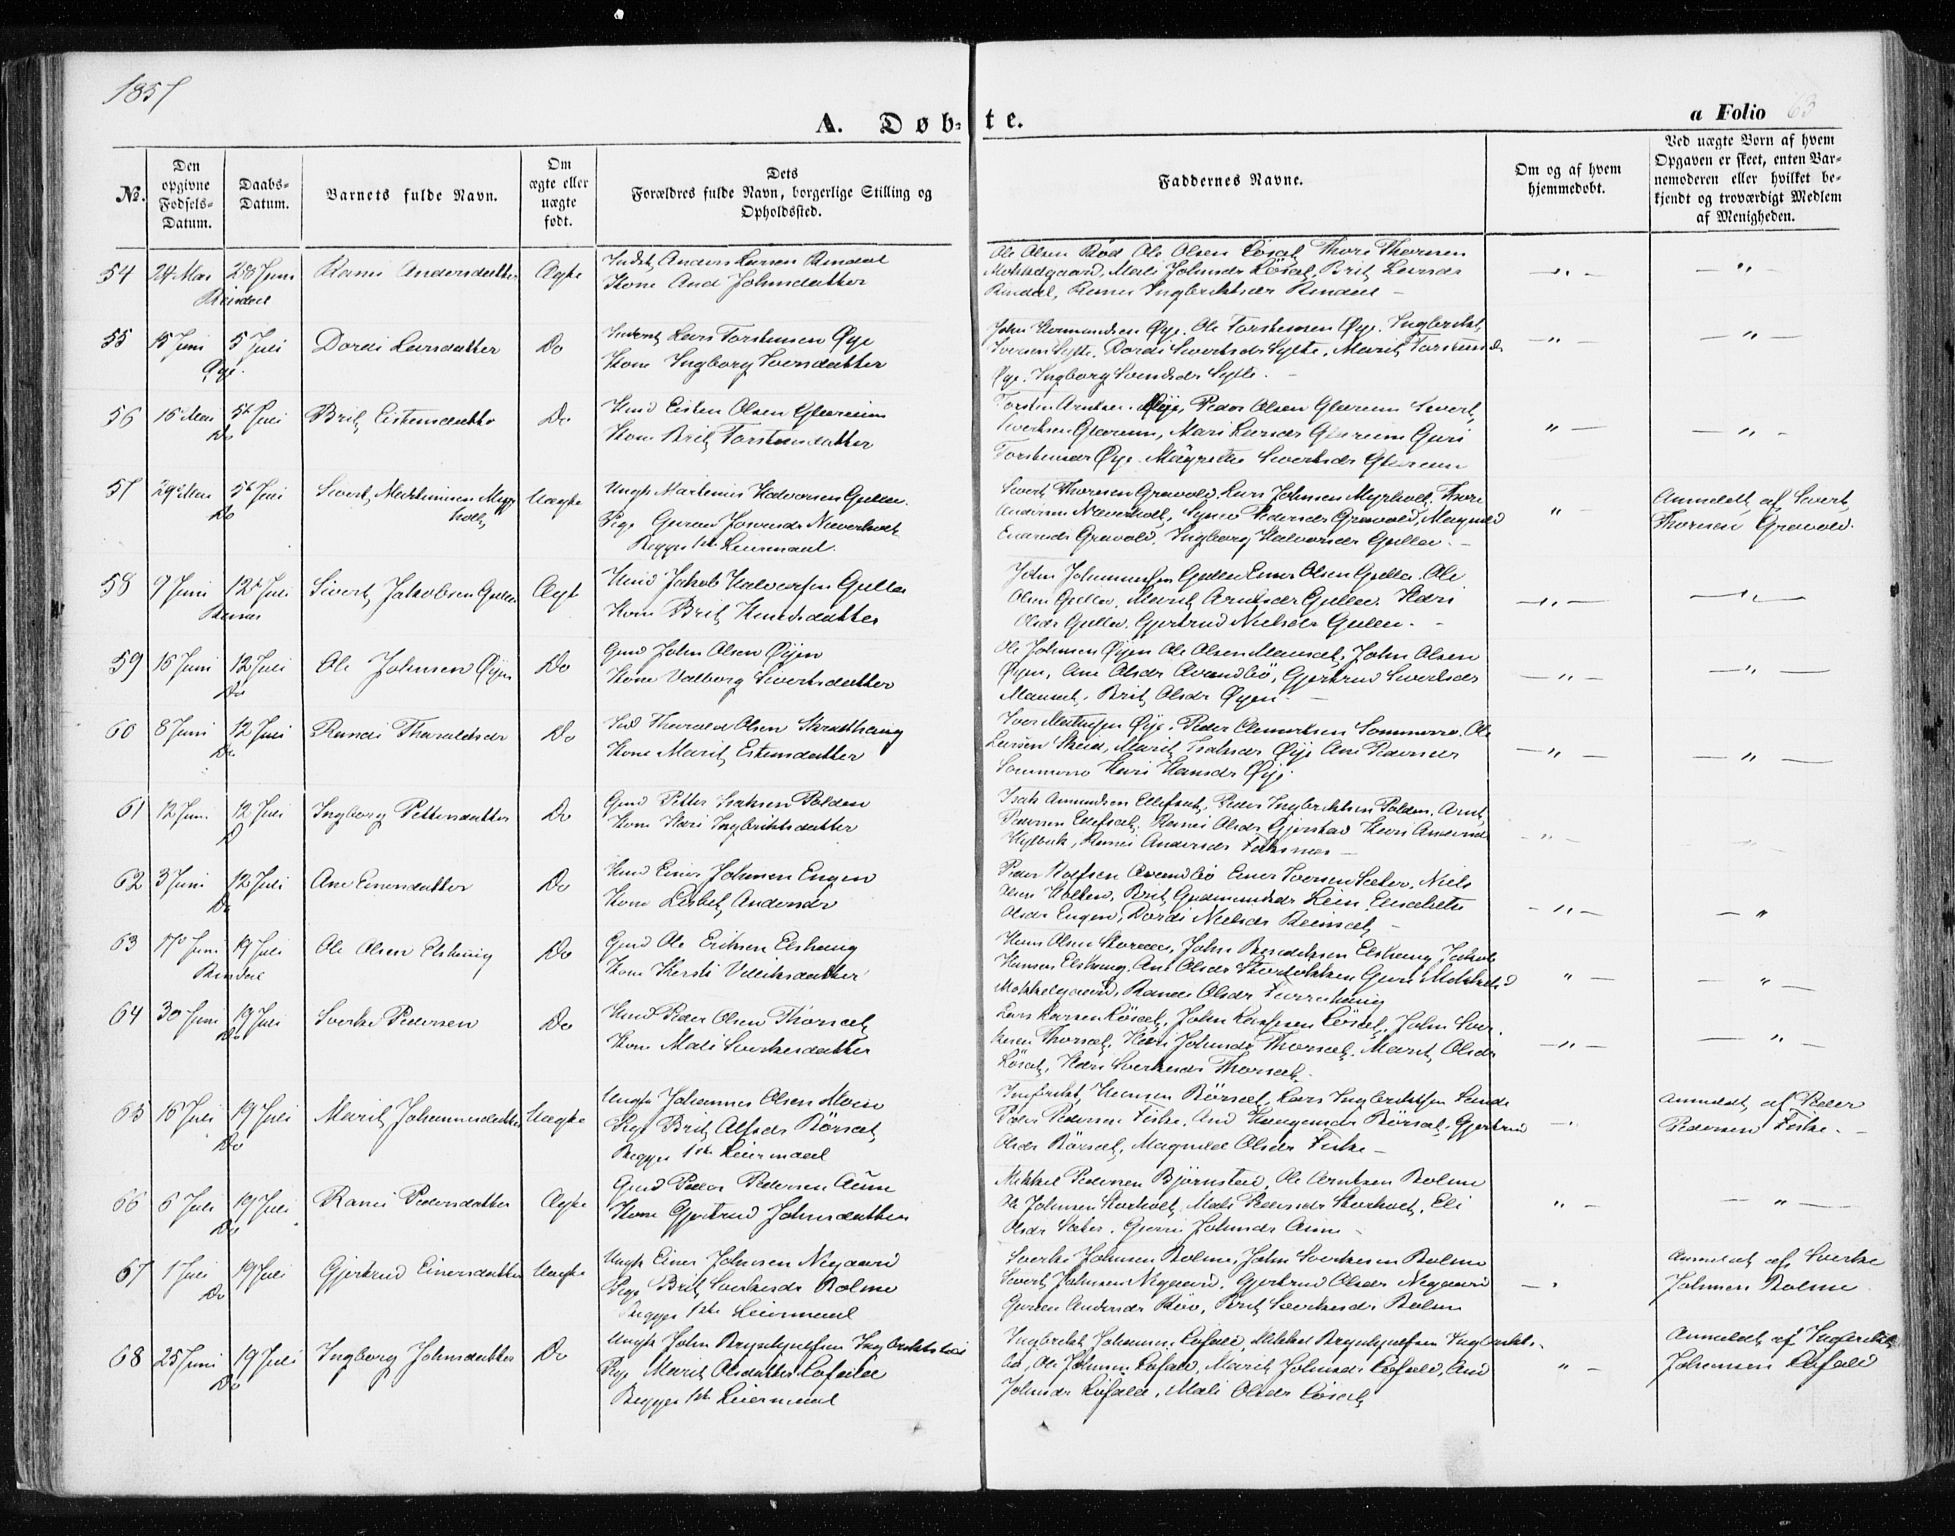 1857
A. Døb-te.
a Folio 63
№.
Den opgivne Fødsels-Datum.
Daabs-Datum.
Barnets fulde Navn.
Om ægte eller uægte født.
Dets Forældres fulde Navn, borgerlige Stilling og Opholdssted.
Faddernes Navne.
Om og af hvem hjemmedøbt.
Ved uægte Børn af hvem Opgaven er skeet, enten Barnemoderen eller hvilket bekjendt og troværdigt Medlem af Menigheden.
54 24 Mai 28 Juni Rani Andersdatter Ægte Inderst Anders Larsen Rindal
Rindal Kone And Johnsdatter
Ole Olsen Bød Ole Olsen Løset Thore Thoresen
Mokkelgaard, Mali Johnsdr Løset, Brit Larsdr
Rindal, Ranei Ingbrektsdr Rindal –
55 15 Juni 5 Juli Dordi Larsdatter Do Inderst Lars Torstensen Øye
Øye. Kone Ingborg Iversdatter
John Hermundsen Øye. Ole Torstensen Øye. Ingbrikt
Iversen Sylte. Dordi Sivertsdr Sylte. Marit Torstensdr
Øye. Ingborg Svendsdr Sylte. –
56 15 Mai 5te Juli Brit Eistensdatter Do Huusd Eisten Olsen Glærum
Do Kone Brit Torstensdatter
Torsten Arntsen Øye, Peder Olsen Glærum Sivert
Sivertsen Glærum, Mari Larsdr Glærum Guri
Torstensdr Øye. Magrethe Sivertsdr Glærum
57 29 Mai 5te Juli Sivert Martinusen Myrholt Uægte Ungk Martinus Halvorsen Gulla.
Do Pige Guren Jonsdr Neverholt
Begges 1ste Leiermaal.
Sivert Thoresen Gravold. Lars Johnsen Myrholt. Thore
Andersen Neverholt, Synev Pedersdr Gravold, Magnild
Einersdr Gravold. Ingborg Halvorsdr Gulla. –
Anmeldt af Sivert
Thoresen Gravold.
58 9 Juni 12te Juli Sivert Jakobsen Gulla Ægte Huusd Jakob Halvorsen Gulla
Kone Brit Knudsdatter
John Johannessen Gulla Einer Olsen Gulla. Ole
Olsen Gulla. Marit Arntsdr Gulla. Kari
Olsdr Gulla. Gjertrud Nielsdr Gulla. –
59 15 Juni 12 Juli Ole Johnsen Øyen Do Gmd John Olsen Øyen
Do Kone Valborg Sivertsdatter
Ole Johnsen Øyen Ole Olsen Mauset, John Olsen
Øyen, Ane Olsdr Avundbø, Gjertrud Sivertsdr
Mauset, Brit Olsdr Øyen. –
60 8 Juni 12 Juli Randi Tharaldsdr Do Ind Tharald Olsen Skrøthaug
Do Kone Marit Estensdatter
Iver Øye. Peder Clemetsen Sommerro. Ole
Larsen Skeid, Marit Isaksdr Øye Ane Pedersdr
Sommerro Kari Hansdr Øye
61 12 Juni 12 Juli Ingborg Pettersdatter Do Gmd Petter Isaksen Polden
D Kone Kari Ingbriktsdatter
Isak Amundsen Ellefsæt, Peder Ingbriktsen Polden. Arnt
Pedersen Ellefsæt. Ranei Olsdr Gjerstad Kari Amundsdr
Hylbak, Ranei Andersdr –
62 3 Juni 12 Juli Ane Einersdatter Do Huusd Einer Johnsen Engen
Do Kone Lisbet Andersdr
Peder Rolfsen Avundbø Einer Iversen Sæter. Niels
Olsen Holten, Brit Gudmundsdr Lein. Elisabeth
Olsdr Engen, Dordi Nielsdr Reinset –
63 17 Juni 19 Juli Ole Olsen Elshaug Do Gmd Ole Eriksen Elshaug
Rindal Kone Kersti Villiksdatter
Hans Olsen, John Bendiksen Elshaug Jakob
Hansen Elshaug. Ane Olsdr Storløkken Guri Mokkelsd
Mokkelgaard, Ranei Olsdr Furrehaug
64 30 Juni 19 Juli Sverke Pedersen Do Huusd Peder Olsen Thorset
Do Kone Mali Sverkesdatter
Lars Larsen Løset, John Larssen Løset, John Sverkesen
Thorset, Kari Johnsdr Thorset. Marit Olsdr
Løset, Kari Sverkesdr Thorset.
65 15 Juli 19 Juli Marit Johannesdatter Uægte Ungk Johannes Olsen Moen
Do Pige Brit Alfsdr Børset
Begges 1ste Leiermaal
Ingbrikt Hansen Børset Lars Ingbriktsen Lande
Peder Pedersen Fiske. And Haagensdr Børset. Gjertrud
Olsdr Børset, Magnild Olsdr Fiske –
Anmeldt af Peder
Pedersen Fiske. –
66 6 Juli 19 Juli Ranei Pedersdatter Ægte Gmd Peder Pedersen Aune
Do Kone Gjertrud Johnsdatter
Mikkel Pedersen Bjørnstad, Ole Arntsen Bolme
Ole Johnsen Storholt, Mali Pedersdr Storholt, Eli
Olsdr Sæter. Gjerri Johnsdr Aune –
67 1 Juli 19 Juli Gjertrud Einersdatter Uægte Ungk Einer Johnsen Negaard
Do Pige Brit Sverkesdr Bolme
Begges 1ste Leiermaal
Sverke Johnsen Bolme. John Sverkesen Bolme
Sivert Johnsen Negaard. Gjertrud Olsdr Negaard
Guren Andersdr Bøv, Brit Sverkesdr Bolme
Anmeldt af Sverke
Johnsen Bolme.
68 25 Juni 19 Juli Ingborg Johnsdatter Do Ungk John Brynhjulfsen Ingbrektsbøe
Do Pige Marit Olsdatter Løfald
Begges 1ste Leiermaal
Ingbrikt Johansen Løfald, Mikkel Brynhjulfsen Ingbrikt-
bø, Ole Johnsen Løfald, Marit Johnsdr Løfald, And
Johnsdr Løfald, Mali Olsdr Løset
Anmeldt af Ingbrikt
Johansen Løfald